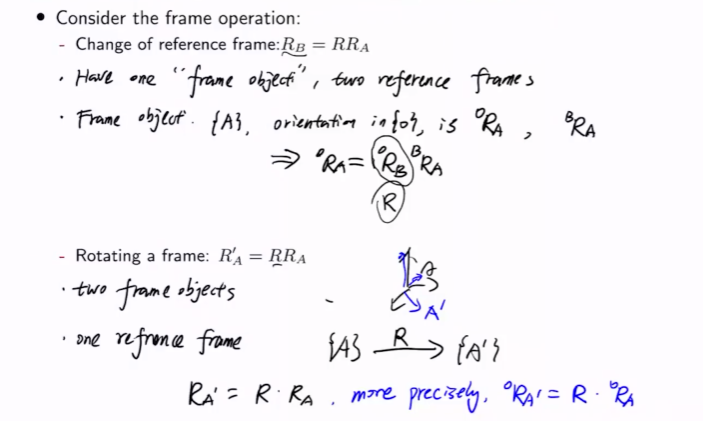 • Consider the frame operation:
- Change of reference frame: R_B = RR_A
· Have one "frame object", two reference frames
· Frame object. {A}, orientation in {o}, is ⁰R_A, ᴮR_A
⇒ ⁰R_A = ⁰R_B ᴮR_A
R
- Rotating a frame: R'_A = RR_A
A
· two frame objects
A'
· one refrence frame
{A} R→ {A'}
R_A' = R · R_A. more precisely, ⁰R_A' = R · ⁰R_A